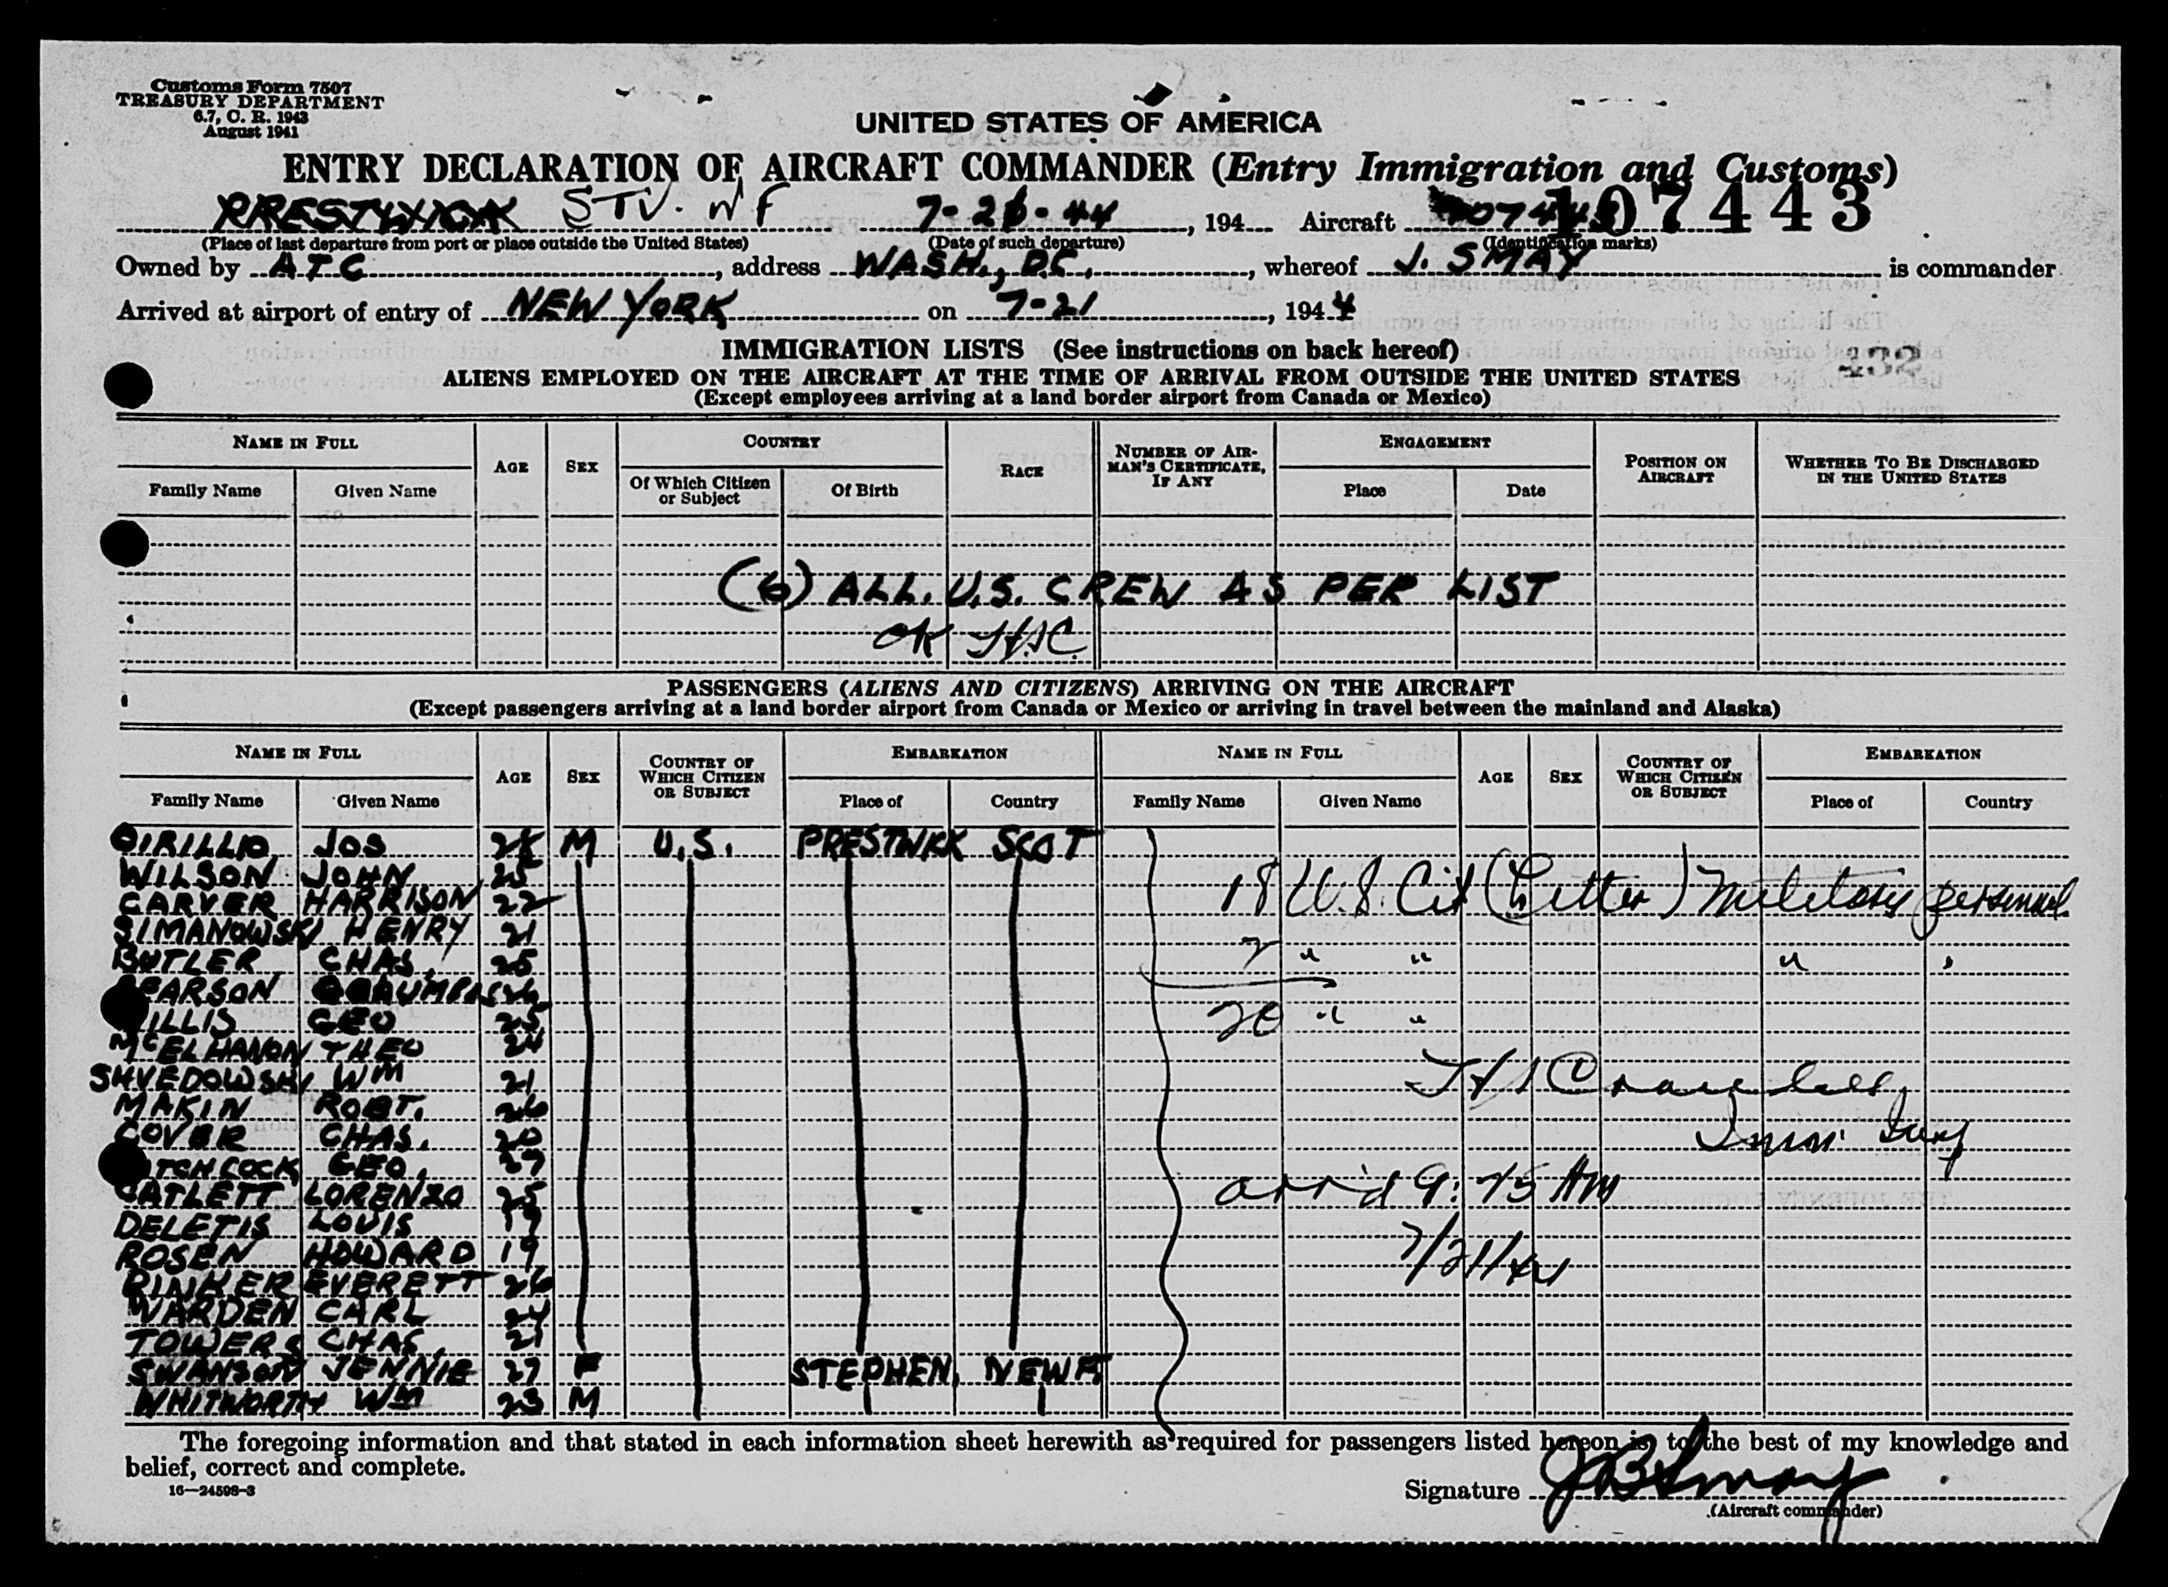 Customs Form 7507
TREASURY DEPARTMENT
6.7, C. R. 1943
August 1941
UNITED STATES OF AMERICA
ENTRY DECLARATION OF AIRCRAFT COMMANDER (Entry Immigration and Customs)
PRESTWICK STV. NF 7-21-44, 194 Aircraft 107443
(Place of last departure from port or place outside the United States) (Date of such departure) (Identification marks)
Owned by ATC, address WASH., D.C., whereof J. SMAY is commander
Arrived at airport of entry of NEW YORK on 7-21, 1944
IMMIGRATION LISTS (See instructions on back hereof)
ALIENS EMPLOYED ON THE AIRCRAFT AT THE TIME OF ARRIVAL FROM OUTSIDE THE UNITED STATES
(Except employees arriving at a land border airport from Canada or Mexico)
NAME IN FULL AGE SEX COUNTRY RACE NUMBER OF AIRMAN'S CERTIFICATE, IF ANY ENGAGEMENT POSITION ON AIRCRAFT WHETHER TO BE DISCHARGED IN THE UNITED STATES
Family Name Given Name Of Which Citizen or Subject Of Birth Place Date
(6) ALL. U.S. CREW AS PER LIST
OK
PASSENGERS (ALIENS AND CITIZENS) ARRIVING ON THE AIRCRAFT
(Except passengers arriving at a land border airport from Canada or Mexico or arriving in travel between the mainland and Alaska)
NAME IN FULL AGE SEX COUNTRY OF WHICH CITIZEN OR SUBJECT EMBARKATION NAME IN FULL AGE SEX COUNTRY OF WHICH CITIZEN OR SUBJECT EMBARKATION
Family Name Given Name Place of Country Family Name Given Name Place of Country
CIRILLIO JOS M U.S. PRESTWICK SCOT
WILSON JOHN 25
CARVER HARRISON 22
SIMANOWSKI HENRY 21
BUTLER CHAS. 25
PEARSON
WILLIS GEO 25
McELHANON THEO 24
SHVEDOWSKI WM 21
MAKIN ROBT. 26
COVER CHAS. 20
GEO. 27
CATLETT LORENZO 25
DELETIS LOUIS 19
ROSEN HOWARD 19
RINKER EVERETT 26
WARDEN CARL 24
TOWERS CHAS. 21
SWANSON JENNIE 27 F STEPHEN. NEWF.
WHITWORTH WM 23 M
18 U.S. Cit (Litter) Military personnel
2 " " " "
20 " "
Imm. Insp
arr'd 9:45 AM
7/21/44
The foregoing information and that stated in each information sheet herewith as required for passengers listed hereon is, to the best of my knowledge and
belief, correct and complete.
16—24598-3
Signature J B Smay
(Aircraft commander)